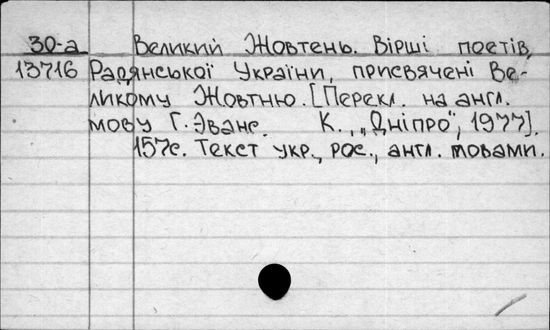 30-а Великий Жовтень. Вірші поетів
13716 Радянської України, присвячені Ве-
ликому Жовтню. [Перекл. на англ.
мову Г. Эванс. К., „Дніпро", 1977].
157с. Текст укр., рос., англ. мовами.